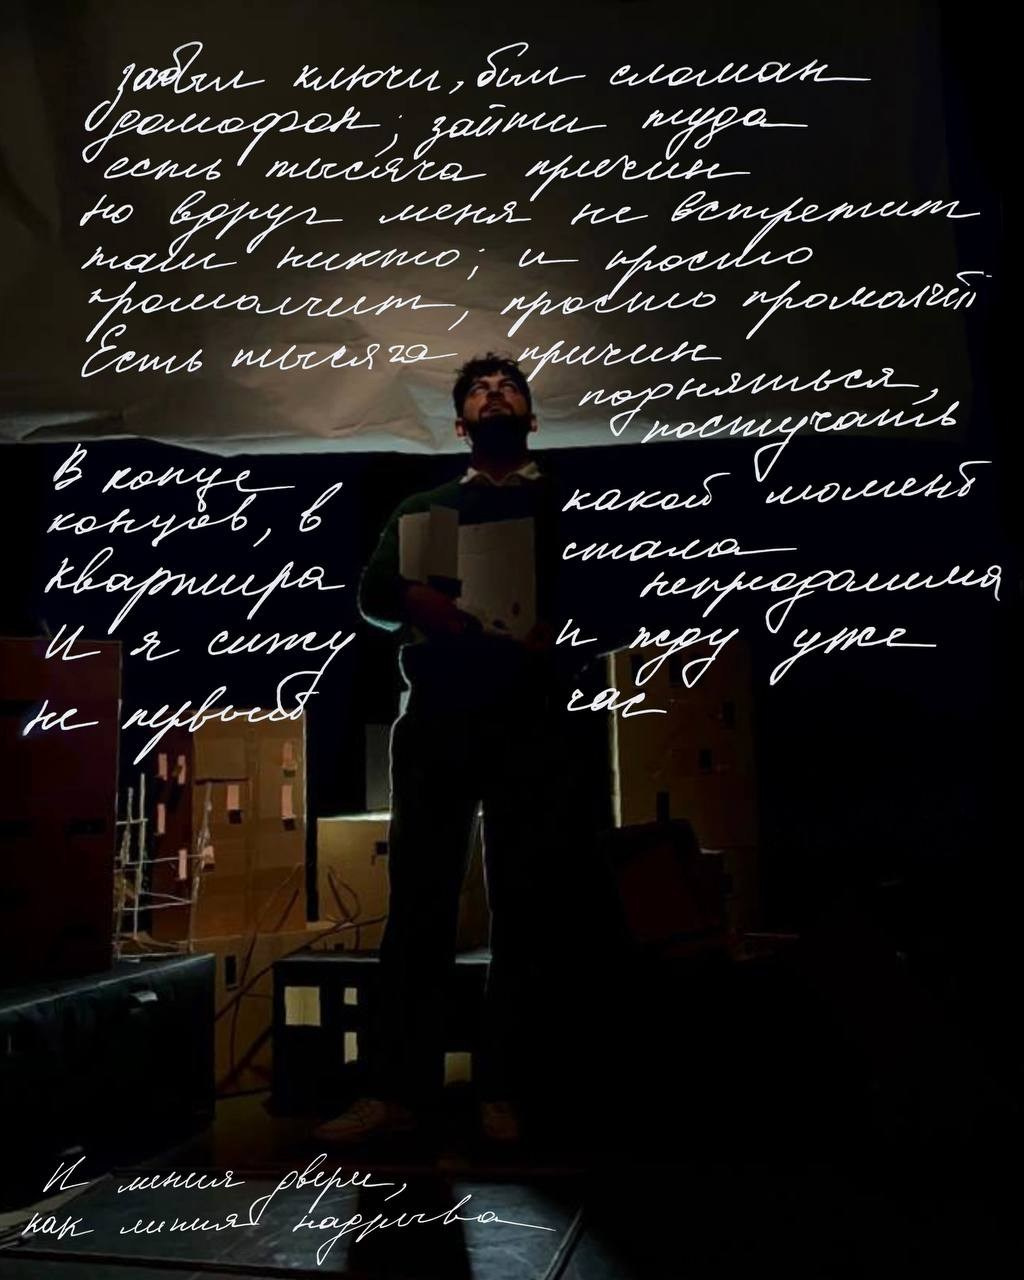 забыл ключи, был сломан
домофон; зайти туда
есть тысяча причин
но вдруг меня не встретит
там никто; и просто
промолчит, просто промолчит
Есть тысяча причин
подняться,
постучать
В конце
концов, в какой момент
квартира стала
непреодолима
И я сижу и жду уже
не первый час
И линия двери,
как линия надрыва